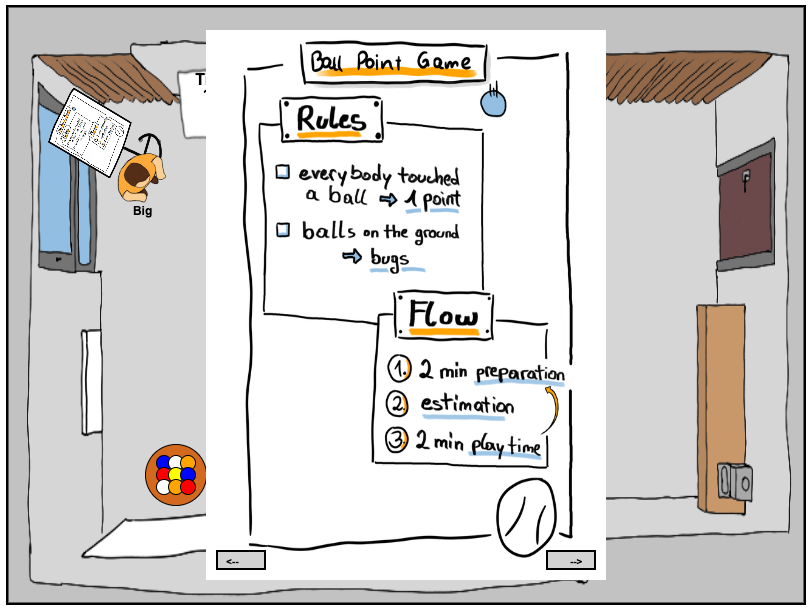 Ball Point Game
Rules
everybody touched
a ball ⇒ 1 point
balls on the ground
⇒ bugs
Flow
1. 2 min preparation
2. estimation
3. 2 min playtime
Big
T
<--
-->